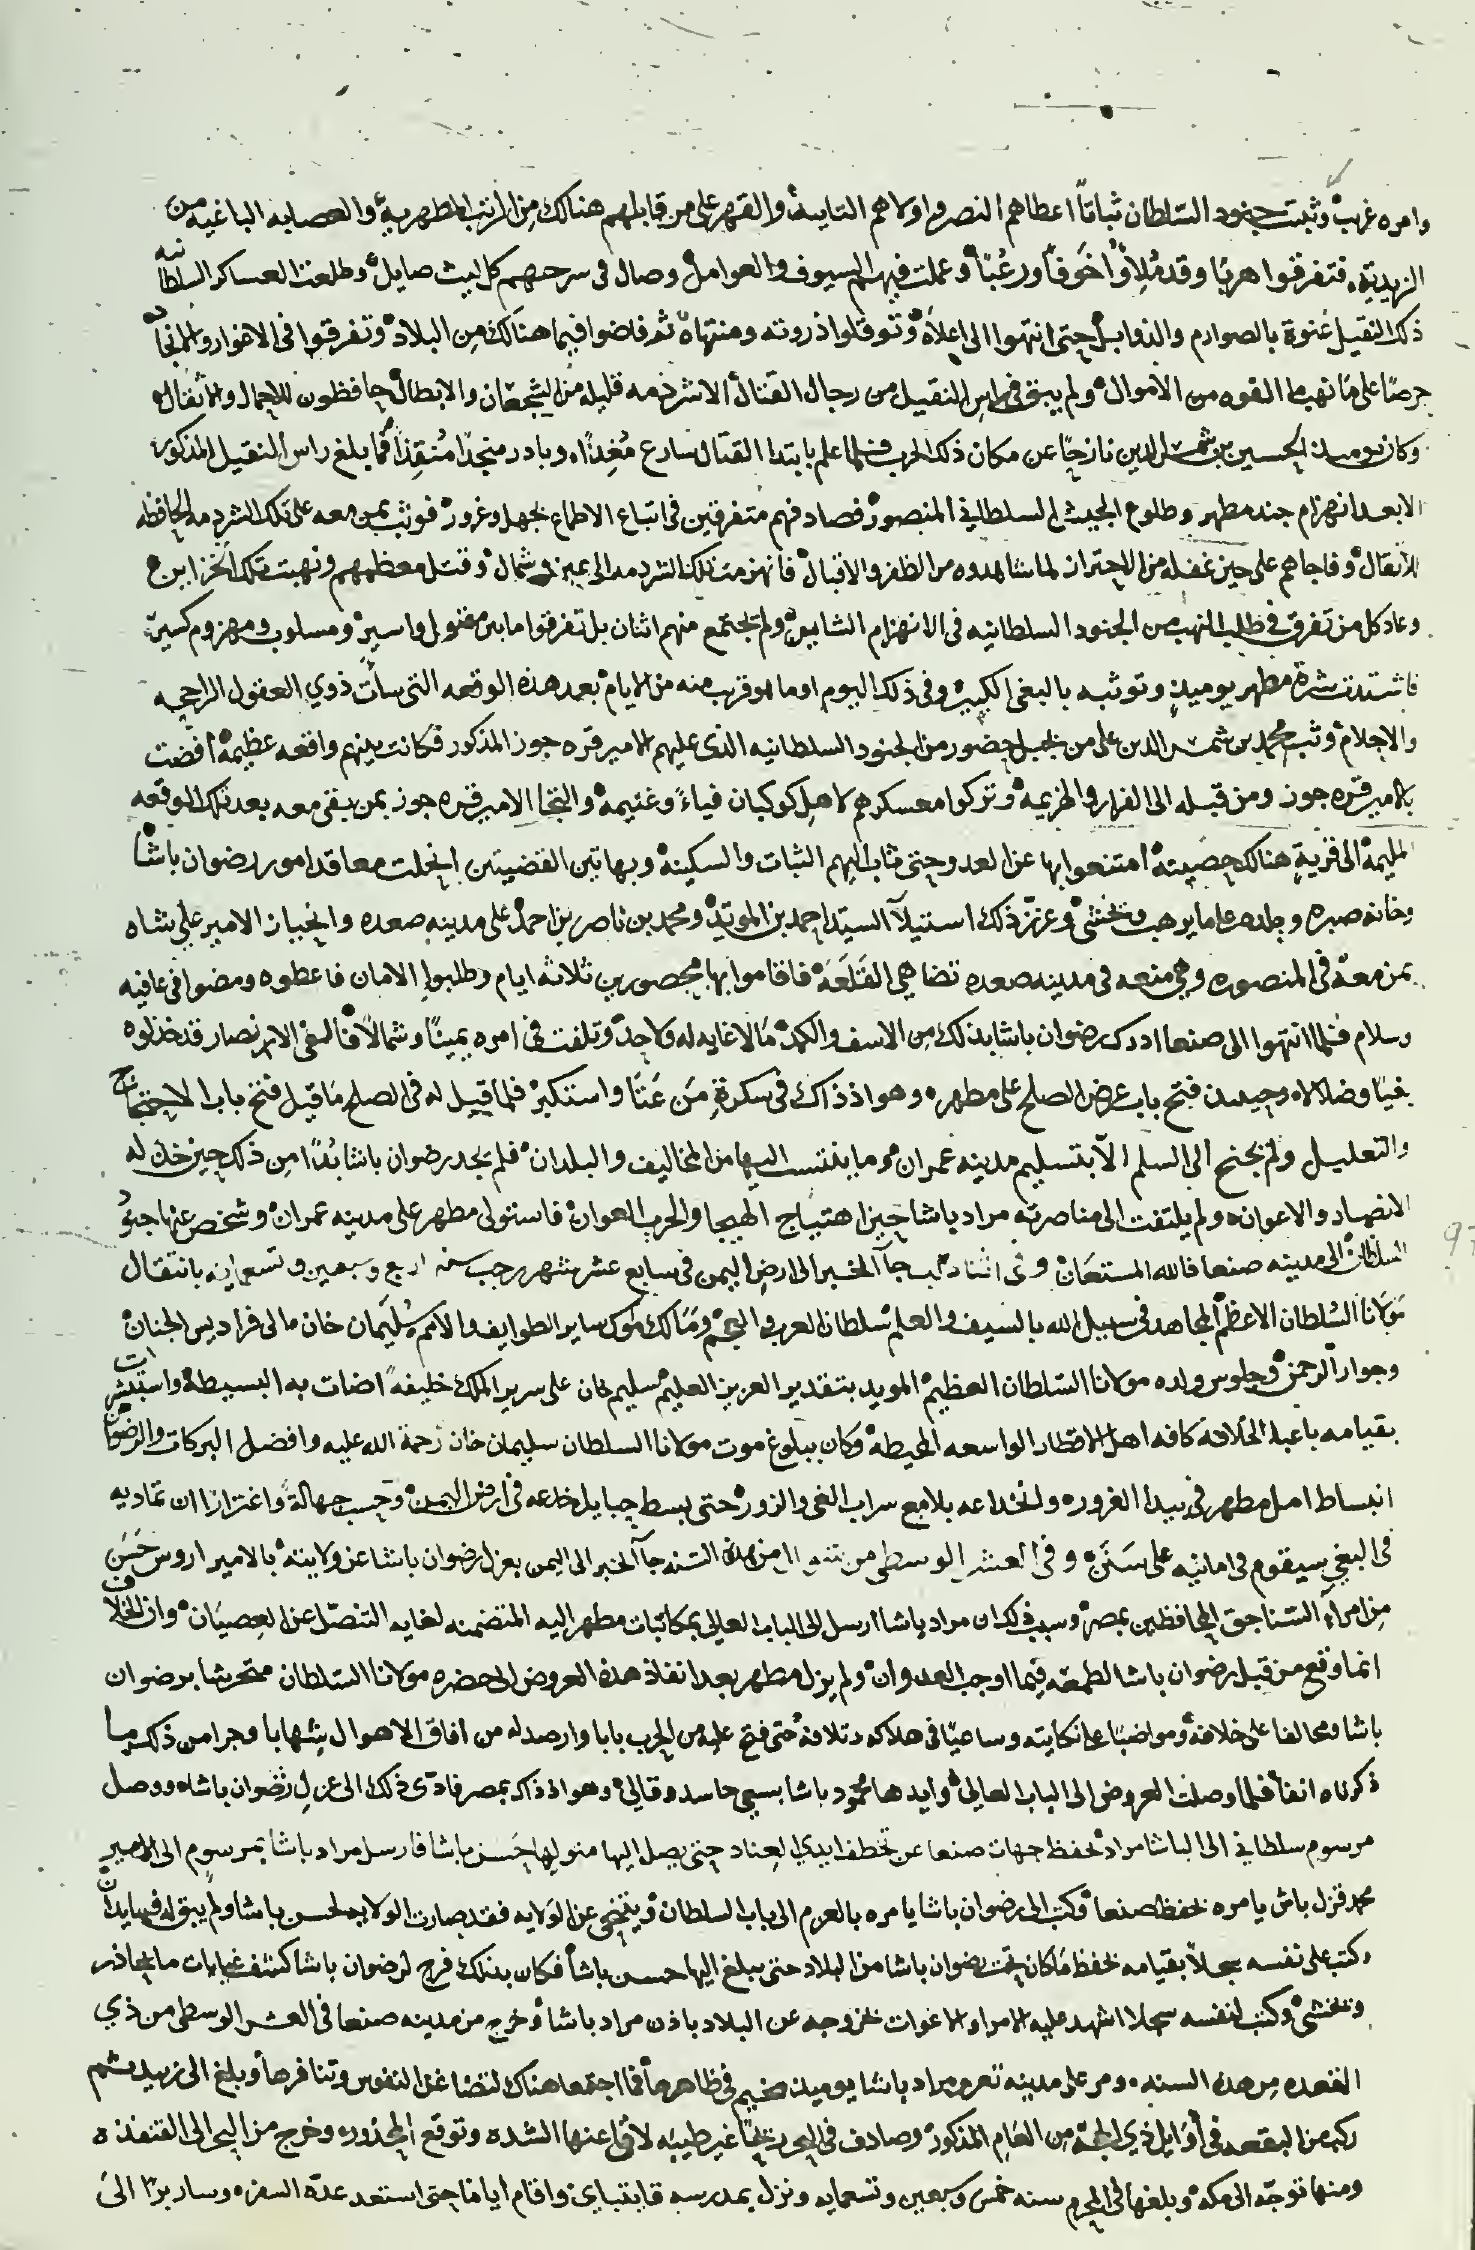 وامره غريب وثبتت جنود السلطان ثباتاً اعطاهم النصر واولاهم التاييد والقهر على من قابلهم هنالك من الرتب المطهرية والعصابه الباغيه من
الزيدية فتفرقوا هربا وقد ملئوا خوفاً ورعباً وعملت فيهم السيوف والعوامل وصال في سرحهم كل ليث صايل وطلعت العساكر السلطانيه
ذلك النقيل عنوة بالصوارم والذوابل حتى انتهوا الى اعلاه وتوقلوا ذروته ومنتهاه ثم فاضوا فيما هنالك من البلاد وتفرقوا في الاغوار والانجاد
حرصا على ما نهب القوه من الاموال ولم يبق في راس النقيل من رجال القتال الا شرذمه قليله من الشجعان والابطال حافظون للاحمال والاثقال
وكان يوميذ الحسين بن شمس الدين نازحا عن مكان ذلك الحرب فلما علم بابتدا القتال سارع مغذا وبادر منجدا منقذا فما بلغ راس النقيل المذكور
الا بعد انهزام جند مطهر وطلوع الجيش السلطاني المنصور فصادفهم متفرقين في اتباع الاطماع بجهل وغرور فوثب بمن معه على تلك الشرذمه الحافظه
للاثقال وفاجاهم على حين غفله من الاحتراز لما شاهدوه من الظفر والاقبال فانهزمت تلك الشرذمه الى يمين وشمال وقتل معظمهم ونهبت تلك الخزاين
وعاد كل من تفرق في طلب النهب من الجنود السلطانيه في الانهزام ولم يجتمع منهم اثنان بل تفرقوا ما بين مقتول واسير ومسلوب ومهزوم كسير
فاشتدت شرة مطهر يوميذ وتوثبه بالبغي الكبير وفي ذلك اليوم او ما هو قريب منه من الايام بعد هذه الوقعه التي سأت ذوي العقول الراجحه
والاحلام وثب محمد بن شمس الدين على من بجبل حضور من الجنود السلطانيه الذي عليهم الامير قره جوز المذكور فكانت بينهم واقعه عظيمة افضت
بالامير قره جوز ومن قبله الى الفرار والهزيمه وتركوا معسكرهم لاهل كوكبان فياءً وغنيمه والتجا الامير قره جوز بمن بقى معه بعد تلك الوقعه
المليمة الى قرية هنالك حصينة امتنعوا بها عن العدو حتى ثاب اليهم الثبات والسكينة وبهاتين القضيتين انحلت معاقد امور رضوان باشا
وخانه صبره وجلده على ما يرهب ويخشى وعزز ذلك استيلآ السيد احمد بن المويد ومحمد بن ناصر بن احمد على مدينه صعده وانحياز الامير علي شاه
بمن معه في المنصوره وهي منعه في مدينه صعده تضاهي القلعة فاقاموا بها محصورين ثلاثة ايام وطلبوا الامان فاعطوه ومضوا في عافيه
وسلام فلما انتهوا الى صنعا ادرك رضوان باشا بذلك من الاسف والكمد ما لا غايه له ولا حد وتلفت في امره يمينا وشمالا فالفى الانصار قد خذلوه
بغيا وضلالا وحينيذ فتح باب عرض الصلح على مطهر وهو اذ ذاك في سكرة من عتا واستكبر فلما قيل له في الصلح ما قيل فتح باب الاحتجاج
والتعليل ولم يجنح الى السلم الا بتسليم مدينه عمران وما ينتسب اليها من المخاليف والبلدان فلم يجد رضوان باشا بُدا من ذلك حين خذله
الانصار والاعوان ولم يلتفت الى مناصرته مراد باشا حين اهتياج الهيجا والحرب العوان فاستولى مطهر على مدينه عمران وشخص عنها جنود
السلطان الى مدينه صنعا فالله المستعان وفي اثنا جآ الخبر الى ارض اليمن في سابع عشر شهر رجب سنه اربع وسبعين وتسعمايه بانتقال
مولانا السلطان الاعظم المجاهد في سبيل الله بالسيف والعلم سلطان العرب والعجم ومالك ملوك ساير الطوايف والامم سليمان خان الى فراديس الجنان
وجوار الرحمن وجلوس ولده مولانا السلطان العظيم المويد بتقدير العزيز العليم سليم خان على سرير الملك خليفه اضات به البسيطة واستبشرت
بقيامه باعبا الخلافه كافه اهل الاقطار الواسعه المحيطه وكان ببلوغ موت مولانا السلطان سليمان خان رحمة الله عليه وافضل البركات والرضوان
انبساط امل مطهر في بيدا الغرور وانخداعه بلامع سراب الغي والزور حتى بسط حبايل خدعه في ارض اليمن وحسب جهالة واغترارا ان تماديه
في البغي سيقوم في امانيه على سنن وفي العشر الوسطى من من هذه السنه جآ الخبر الى اليمن بعزل رضوان باشا عن ولايته بالامير اروس حسن
من امرآء السناجق المحافظين بمصر وسبب ذلك ان مراد باشا ارسل الى الباب العالي بمكاتبات مطهر اليه المتضمنه لغايه التنصل عن العصيان وان الخلاف
انما وقع من قبل رضوان باشا لطمعه فيما اوجب العدوان ولم يزل مطهر بعد انفاذ هذه العروض الى حضره مولانا السلطان متحرشا برضوان
باشا ومحالفا على خلافه ومواضبا على نكايته وساعيا في هلاكه وتلافه حتى فتح عليه من الحرب بابا وارصد له من افاق الاهوال شهابا وجرا من ذلك ما
ذكرناه انفا فلما وصلت العروض الى الباب العالي وايدها محمود باشا بسعي حاسد وقالي وهو اذ ذاك بمصر فادى ذلك الى عزل رضوان باشاه ووصل
مرسوم سلطاني الى الباشا مراد بحفظ جهات صنعا عن تخطف ايدي العناد حتى يصل اليها متوليها حسن باشا فارسل مراد باشا بمرسوم الى الامير
محمد قزل باش يامره بحفظ صنعا وكتب الى رضوان باشا يامره بالعزم الى باب السلطان ويتنحى عن الولايه فقد صارت الولايه لحسن باشا ولم يبق له فيها يدان
وكتب على نفسه سجلاً بقيامه بحفظ ما كان تحت رضوان باشا من البلاد حتى يبلغ اليها حسن باشا فكان بذلك فرج لرضوان باشا كشف غيابات ما يحاذر
ويخشى وكتب لنفسه سجلا اشهد عليه الامرا والاغوات بخروجه عن البلاد باذن مراد باشا وخرج من مدينه صنعا في العشر الوسطى من ذي
القعده من هذه السنه ومر على مدينه تعز ومراد باشا يوميذ مخيم في ظاهرها فما اجتمعا هناك لتضاغن النفوس وتنافرها وبلغ الى زبيد ثم
ركب من البقعه في اوايل ذي الحجة من العام المذكور وصادف في البحر ريحا غير طيبه لاقى عنها الشده وتوقع المحذور وخرج من البحر الى القنفذه
ومنها توجه الى مكه وبلغها في المحرم سنه خمس وسبعين وتسعمايه ونزل بمدرسه قايتباي واقام اياما حتى استعد عدة السفر وسار برّا الى